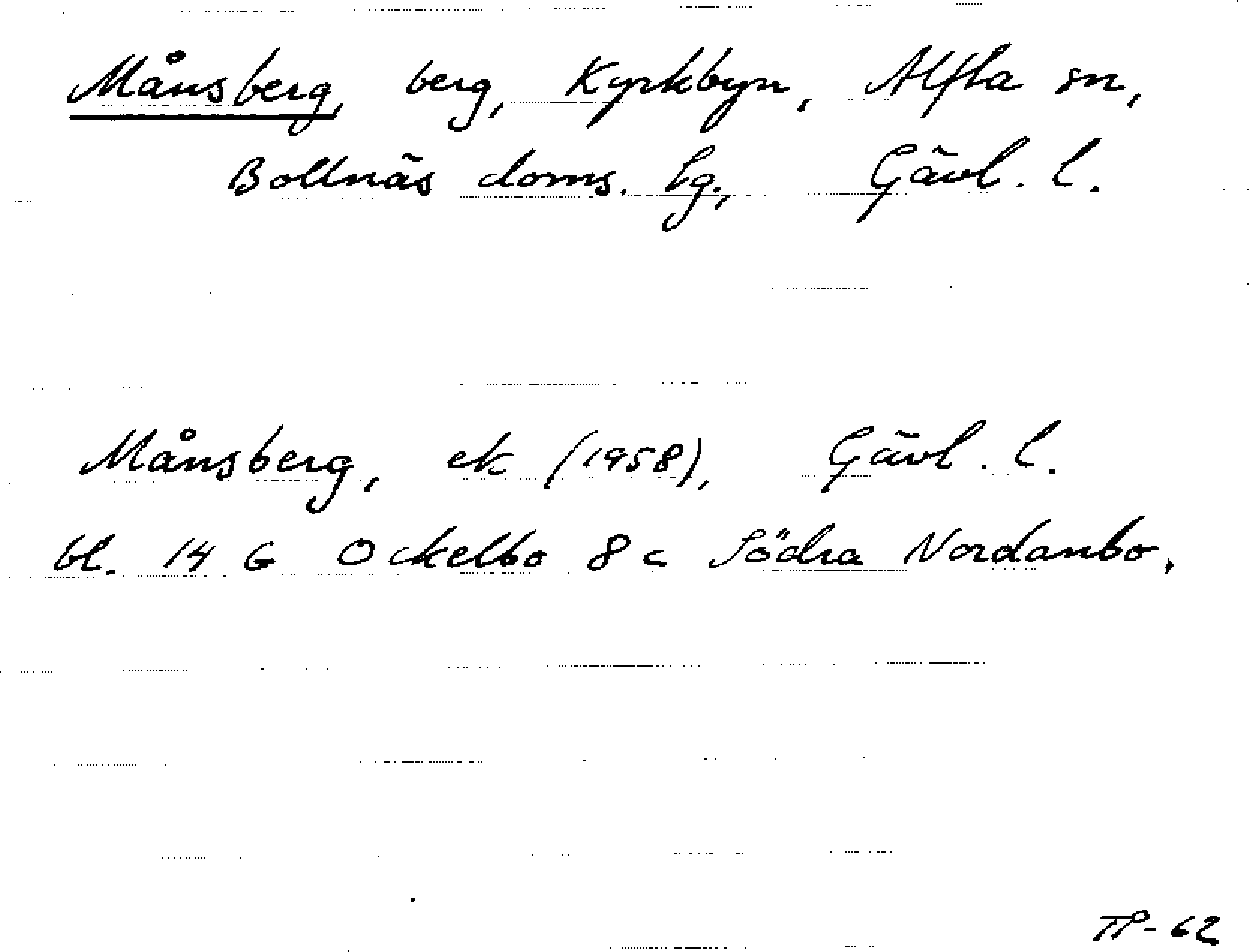 Månsberg, berg, Kyrkbyn, Alfta sn,
Bollnäs doms. lg., Gävl. l.
Månsberg, ek (1958), Gävl. l.
bl. 14 G Ockelbo 8 c Södra Nordanbo.
TP-62